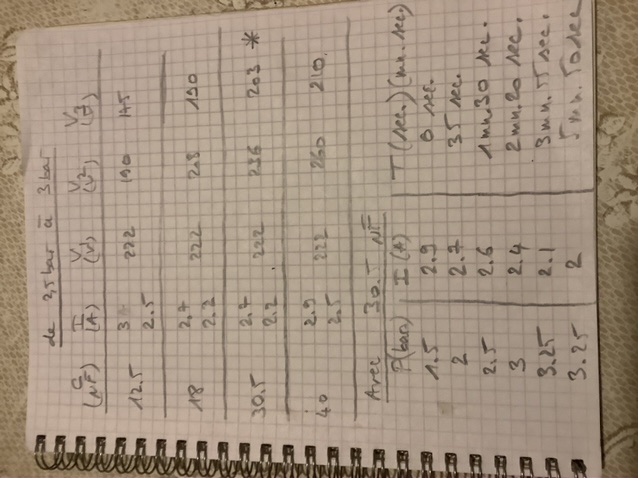 de 2,5 bar à 3 bar
C I V V V
(µF) (A) (V) (V)
12.5 3 222 190 175
2.5
18 2.7 222 228 190
2.2
30.5 2.7 222 236 203 *
2.2
40 2.9 222 260 210
2.5
Avec 30.5 µF
P(bar) I (A) T (sec.) (mn. sec)
1.5 2.9 0 sec.
2 2.7 35 sec.
2.5 2.6 1 mn.30 sec.
3 2.4 2 mn.20 sec.
3.25 2.1 3 mn.55 sec.
3.25 2 5 mn.50 sec